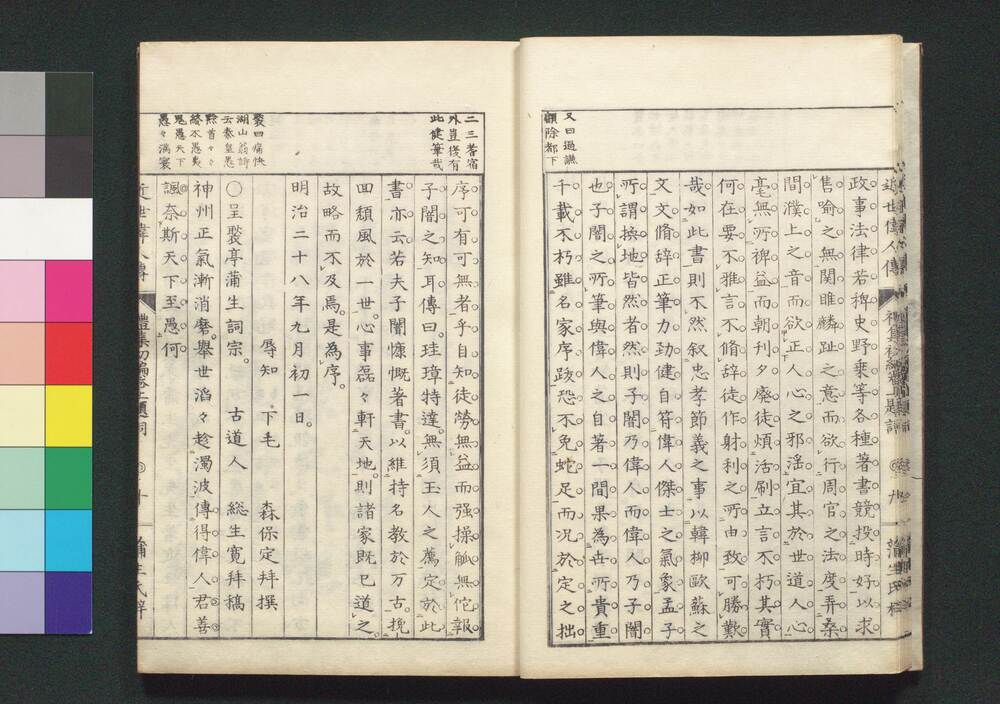 又曰過譙
顧除都下
政事法律若稗史野乗等各種著書競投時好以求
售喩之無関睢麟趾之意而欲行周官之法度弄桑
間濮上之音而欲正人心之邪滛宜其於世道人心
毫無所裨益而朝刊夕廃徒煩活刷立言不朽其實
何在要不雅言不脩辞徒作射利之所由致可勝歎
哉如此書則不然叙忠孝節義之事以韓柳歐蘇之
文文脩辞正筆力勁健自符偉人傑士之氣象孟子
所謂換地皆然者然則子闇乃偉人而偉人乃子闇
也子闇之所筆與偉人之自著一間果為世所貴重
千載不朽雖名家序跋恐不免蛇足而况於定之拙
二三耆宿
外豈復有
此健筆哉
序可有可無者乎自知徒勞無益而强操觚無佗報
子闇之知耳傳曰珪璋特達無須玉人之薦定於此
書亦云若夫子闇慷慨著書以維持名教於万古挽
回頽風於一世心事磊々軒天地則諸家既已道之
故略而不及焉是為序
明治二十八年九月初一日
辱知 下毛 森保定拜撰
褧曰痛快
湖山翁評
云秦皇愚
黔首々々
終不愚夷
鬼愚天下
愚々満寰
〇呈褧亭蒲生詞宗 古道人 総生寛拜稿
神州正氣漸消磨擧世滔々趁濁波傳得偉人君善
諷奈斯天下至愚何
近世偉人傳
十